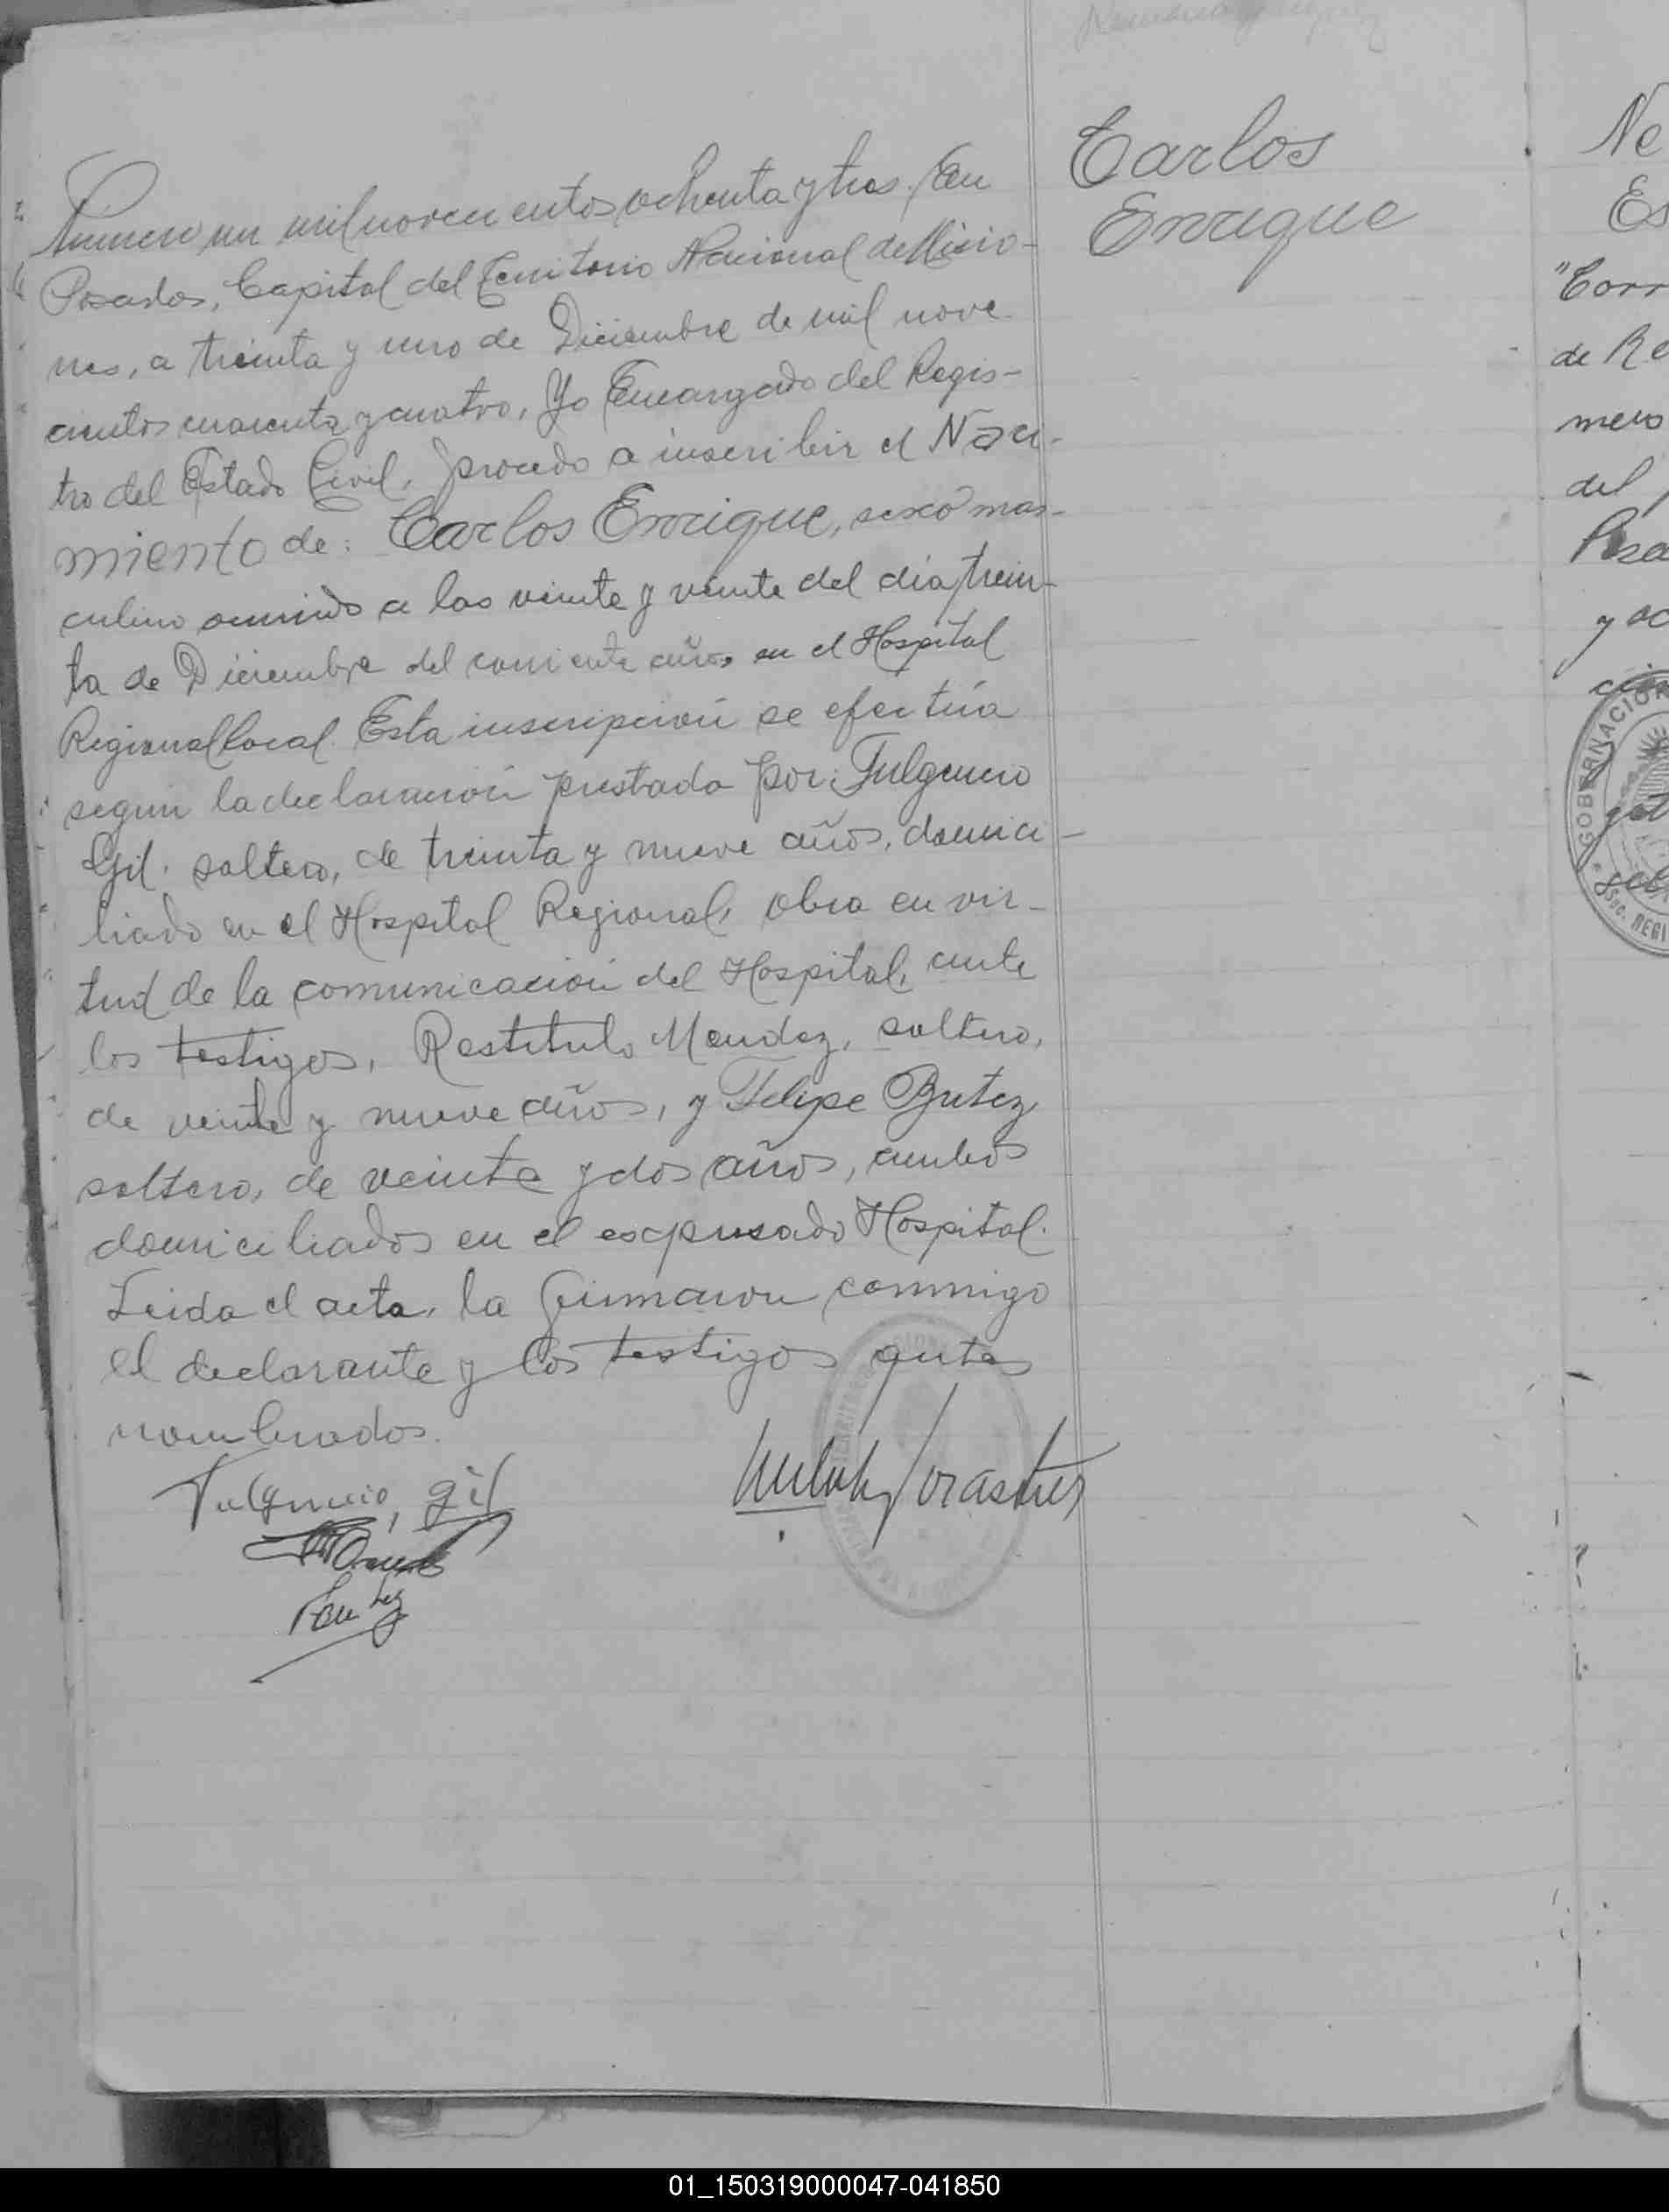 Carlos
Enrique
Numero un mil novecientos ochenta y tres. En
Posadas, Capital del Territorio Nacional de Misio-
nes, a treinta y uno de Diciembre de mil nove-
cientos cuarenta y cuatro, Yo Encargado del Regis-
tro del Estado Civil, procedo a inscribir el Naci-
miento de: Carlos Enrique, sexo mas-
culino ocurrido a las veinte y veinte del dia trein-
ta de Diciembre del corriente año, en el Hospital
Regional local. Esta inscripción se efectúa
segun la declaración prestada por: Fulgencio
Gil. soltero, de treinta y nueve años, domici-
liado en el Hospital Regional, obra en vir-
tud de la comunicación del Hospital, ante
los testigos, Restituto Mendez, soltero,
de veinte y nueve años, y Felipe
soltero, de veinte y dos años, ambos
domiciliados en el expresado Hospital.
Leida el acta, la firmaron conmigo
el declarante y los testigos antes
nombrados.
Fulgencio, gil
Ne
Es
"Corr
de Re
mero
del
Posa
y oc
GOBERNACION
REGI
01_150319000047-041850